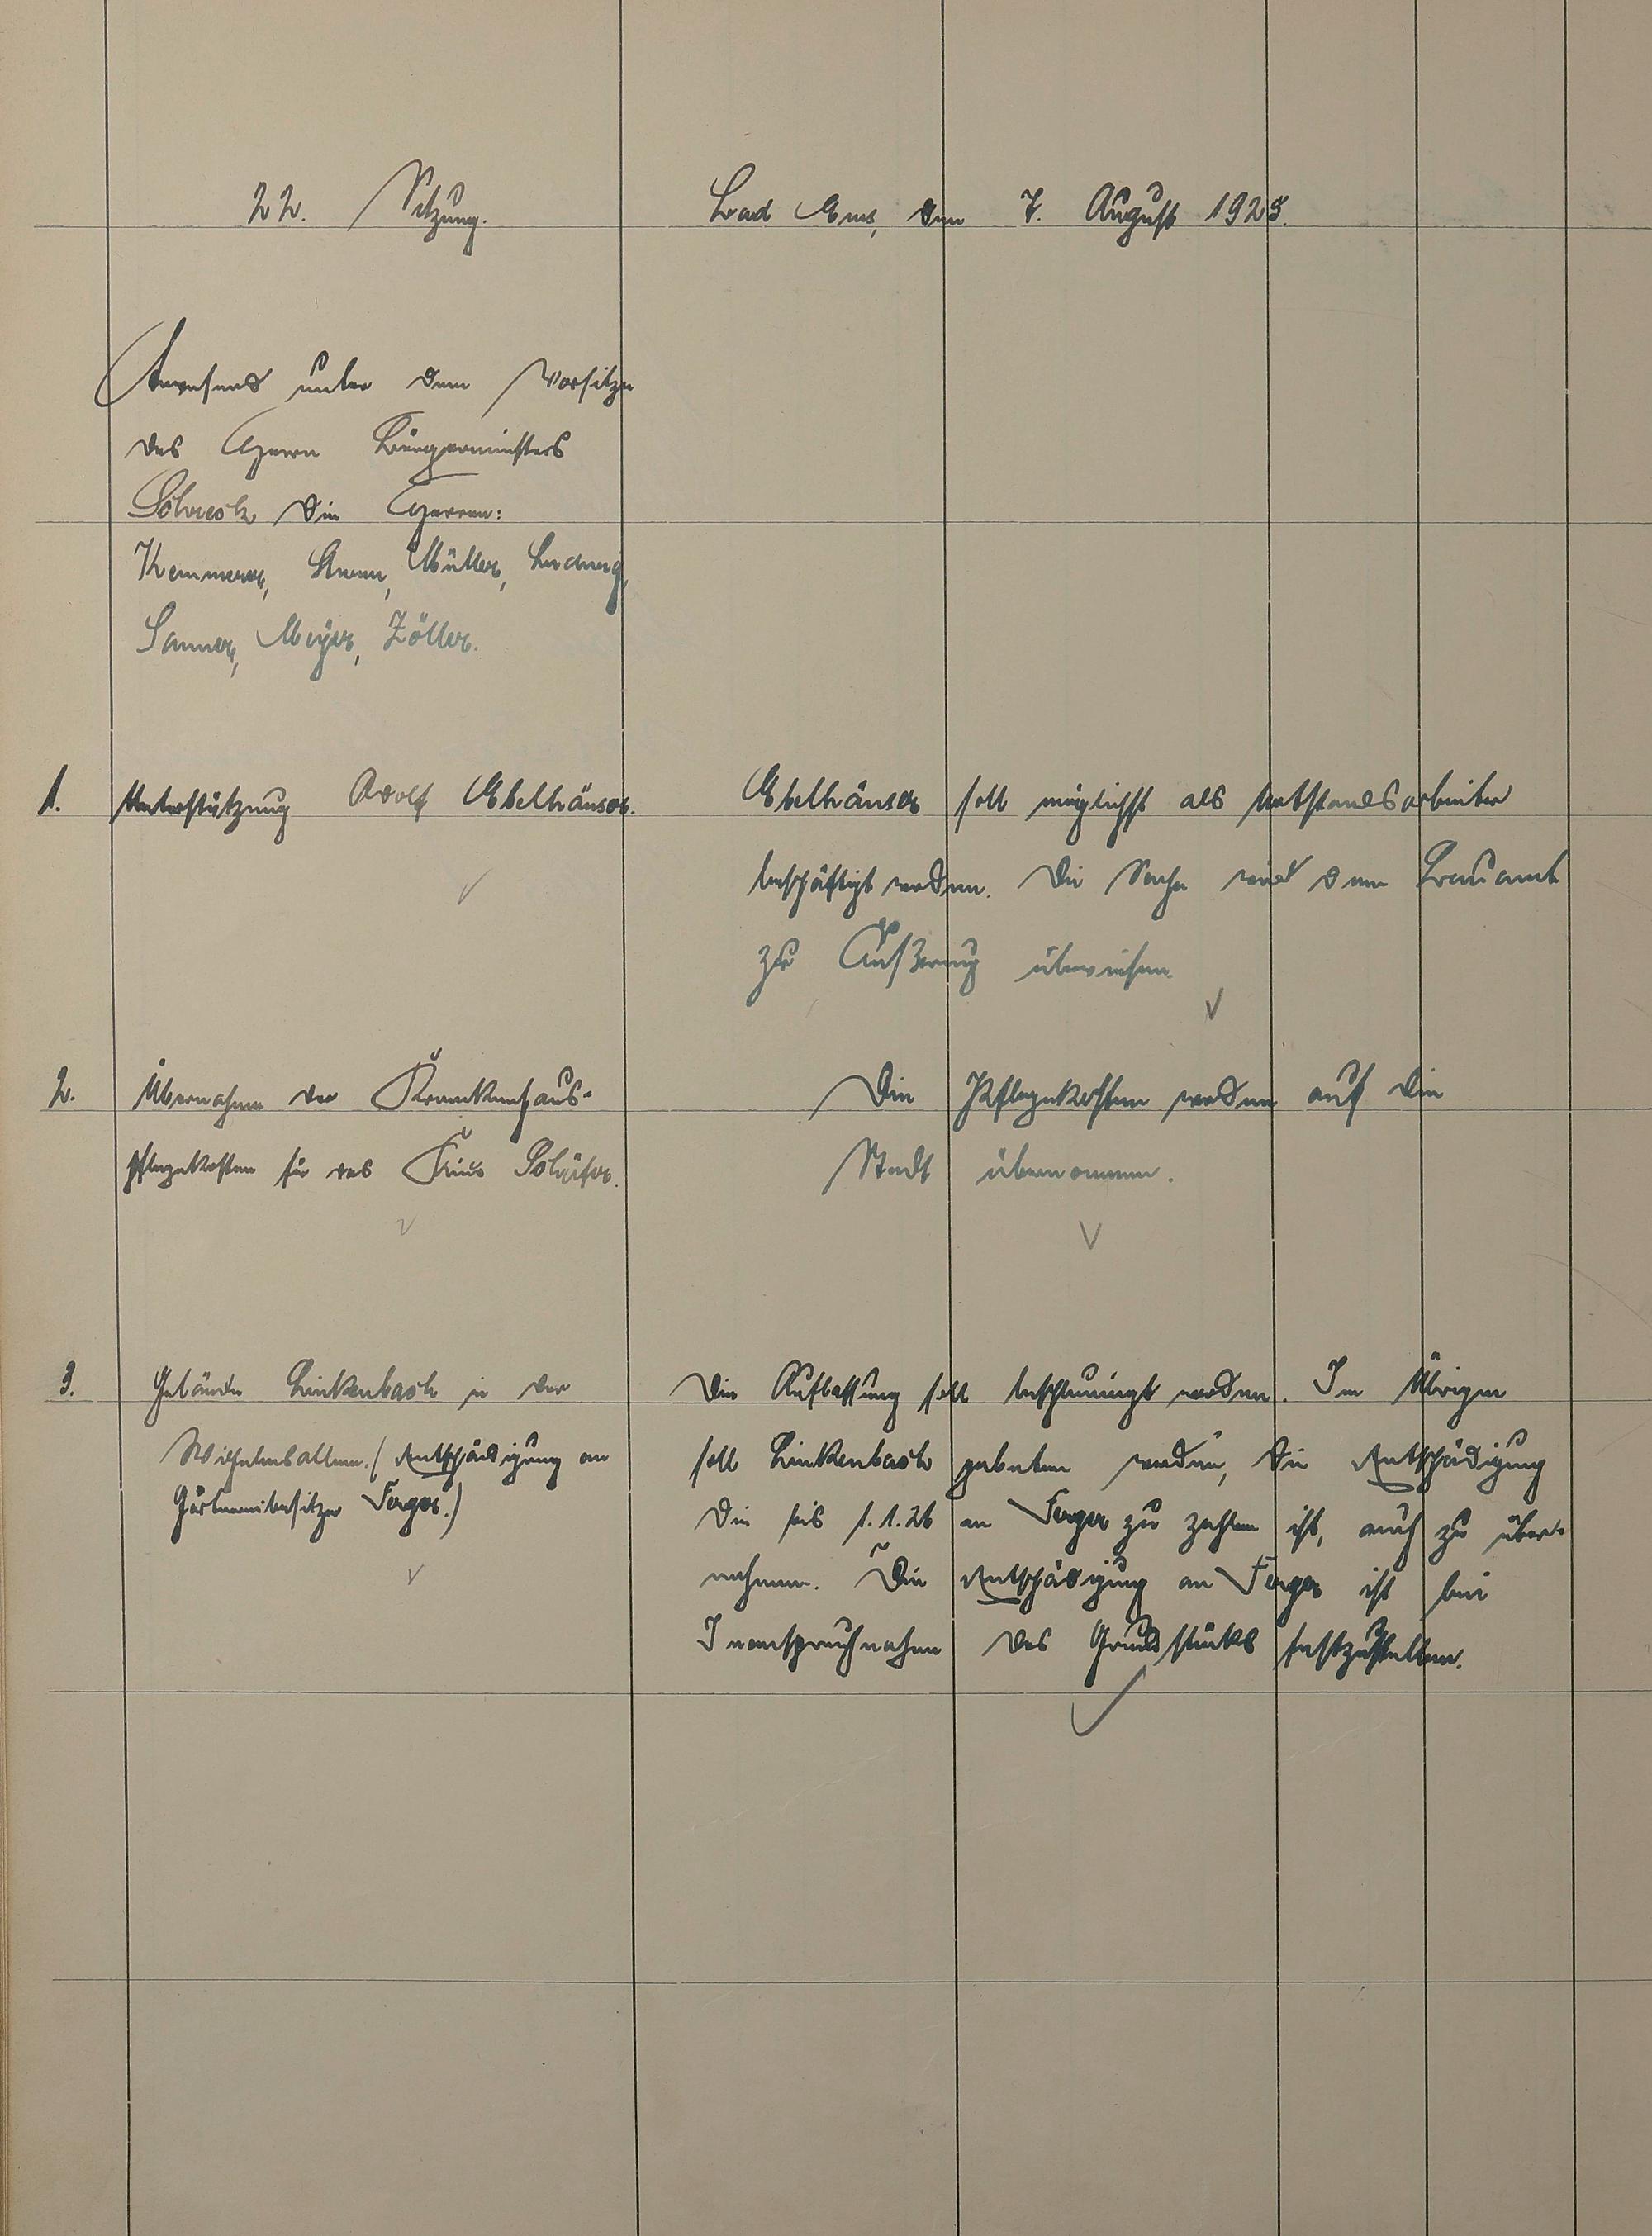 22. Sitzung.
Bad Ems, den 7. August 1925.
Anwesend unter dem Vorsitze
des Herrn Bürgermeisters
Schreck die Herren:
Kemmerer, Müller, Ludwig,
Sanner, Meyer, Zöller.
1. Unterstützung Adolf Ebelhäuser.
Ebelhäuser soll möglichst als Notstandsarbeiter
beschäftigt werden. Die Sache wird dem Bauamt
zur Äußerung überwiesen.
2. Übernahme der Krankenhaus-
pflegekosten für das Kind Schäfer.
Die Pflegekosten werden auf die
Stadt übernommen.
3. Gelände Linkenbach in der
Wilhelmsallee. (Entschädigung an
Gärtnereibesitzer Ferger.)
Die Auflassung soll beschleunigt werden. Im Übrigen
soll Linkenbach gebeten werden, die Entschädigung
die bis 1.1.26 an Ferger zu zahlen ist, auch zu über-
nehmen. Die Entschädigung an Ferger ist bei
Inanspruchnahme des Grundstücks festzustellen.